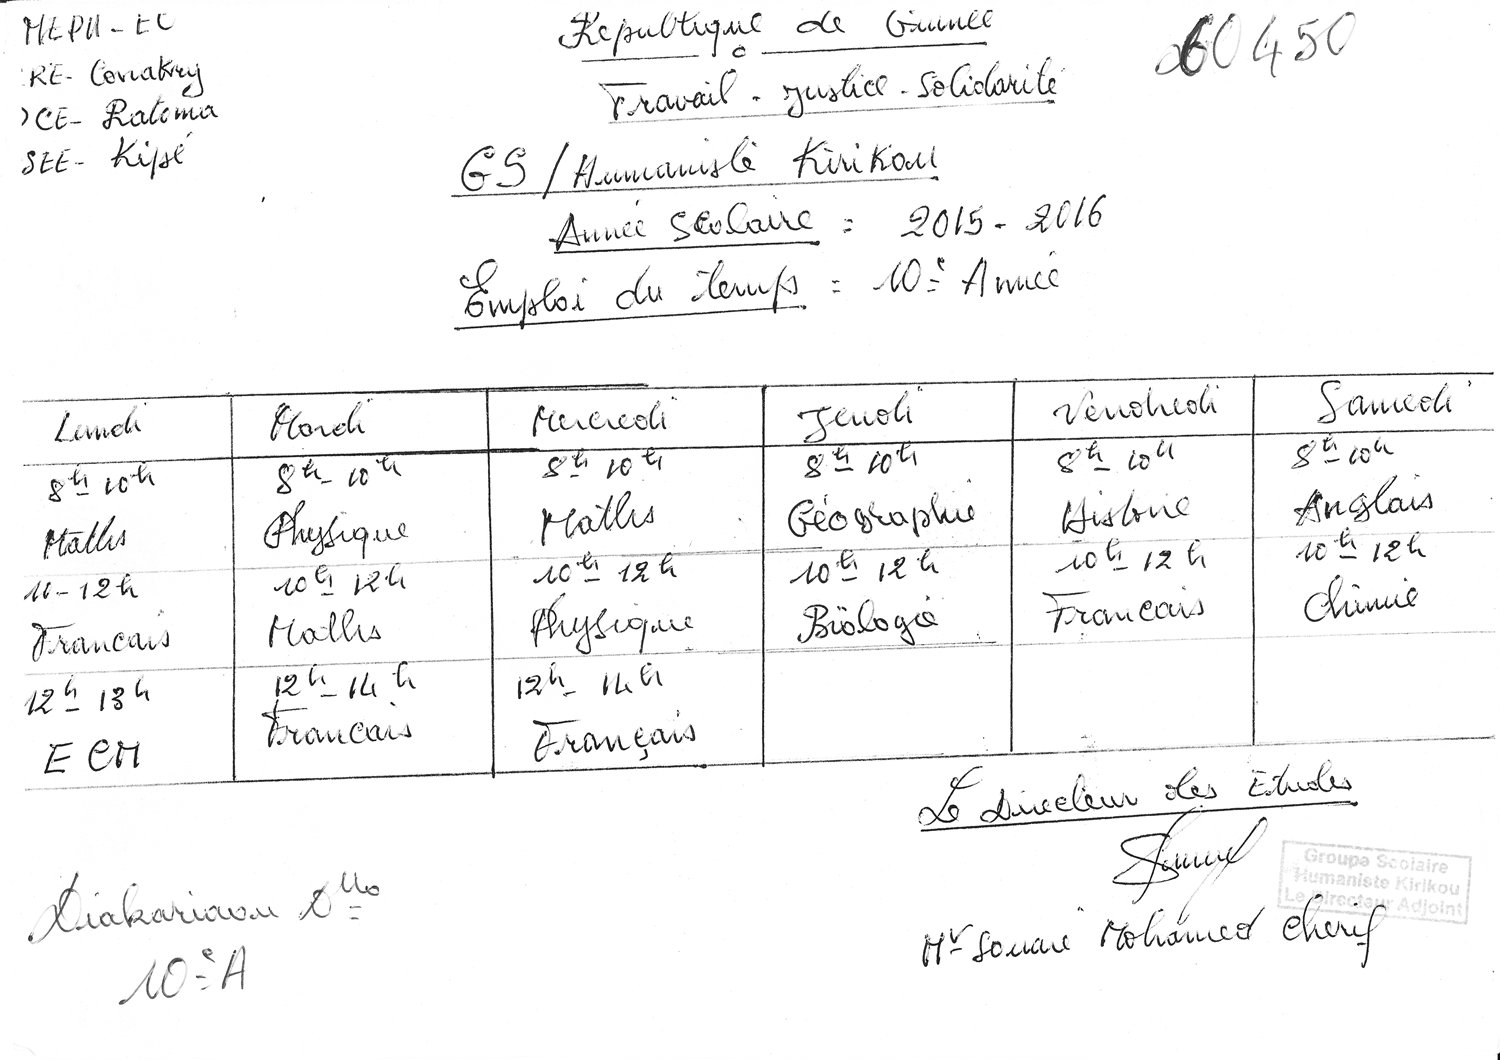 MEPU-EC
République de Guinée
60450
IRE- Conakry
Travail - Justice - Solidarité
DCE- Ratoma
SEE- Kipé
GS/Humaniste Kirikou
Année Scolaire = 2015-2016
Emploi du temps = 10e Année
Lundi Mardi Mercredi Jeudi Vendredi Samedi
8h-10h 8h-10h 8h 10h 8h-10h 8h-10h 8h-10h
Maths Physique Maths Géographie Histoire Anglais
11-12h 10h-12h 10h-12h 10h-12h 10h-12h 10h-12h
Francais Maths Physique Biologie Francais Chimie
12h-13h 12h-14h 12h-14h
ECM Francais Français
Le Directeur des Etudes
Groupe Scolaire
Humaniste Kirikou
Le Directeur Adjoint
Mr Souaré Mohamed Cherif
Diakariaou Dllo
10e A